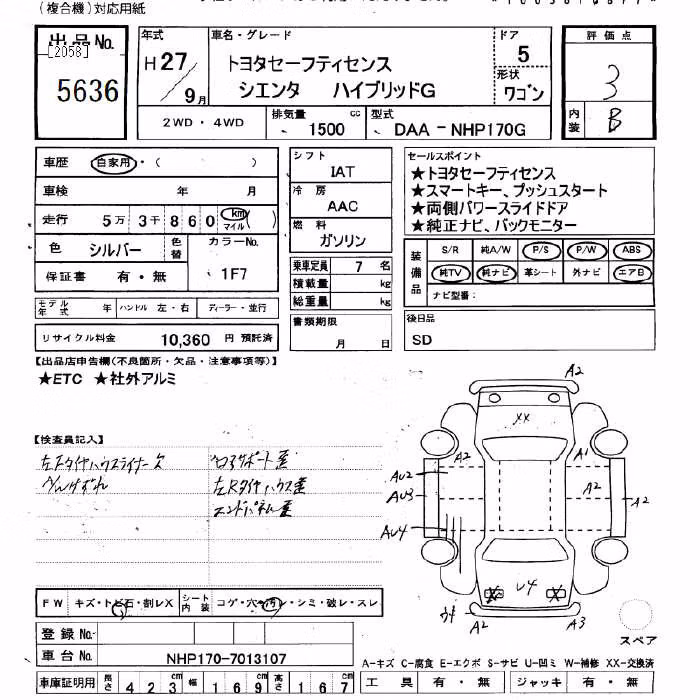 (複合機)対応用紙
出品No.
[2058]
5636
年式
H27/9月
車名・グレード
トヨタセーフティセンス
シエンタ ハイブリッドG
ドア
5
形状
ワゴン
2WD・4WD
排気量
1500 cc
型式
DAA-NHP170G
評価点
3
内装
B
車歴 自家用・( )
車検 年 月
走行 5万 3千 8 6 0 km マイル ( )
色 シルバー
色替
カラーNo.
1F7
保証書 有・無
モデル年式 年
ハンドル 左・右
ディーラー・並行
リサイクル料金 10,360 円 預託済
シフト
IAT
冷房
AAC
燃料
ガソリン
乗車定員 7 名
積載量 kg
総重量 kg
書類期限
月 日
セールスポイント
★トヨタセーフティセンス
★スマートキー、プッシュスタート
★両側パワースライドドア
★純正ナビ、バックモニター
装備品
S/R 純A/W P/S P/W ABS
純TV 純ナビ 革シート 外ナビ エアB
ナビ型番:
後日品
SD
【出品店申告欄(不良箇所・欠品・注意事項等)】
★ETC ★社外アルミ
【検査員記入】
左Fタイヤハウスライナー欠
コアサポート歪
左Rタイヤハウス歪
エンドパネル歪
A2
XX
A2
A1
AU2
AU3
A2
A2
AU4
U4
X
X
A2
A3
スペア
FW キズ・トビ石・割レX
シート内装 コゲ・穴・汚レ・シミ・破レ・スレ
登録No.
車台No. NHP170-7013107
車庫証明用 長さ 4 2 3 cm 幅 1 6 9 cm 高さ 1 6 7 cm
A-キズ C-腐食 E-エクボ S-サビ U-凹ミ W-補修 XX-交換済
工具 有・無 ジャッキ 有・無